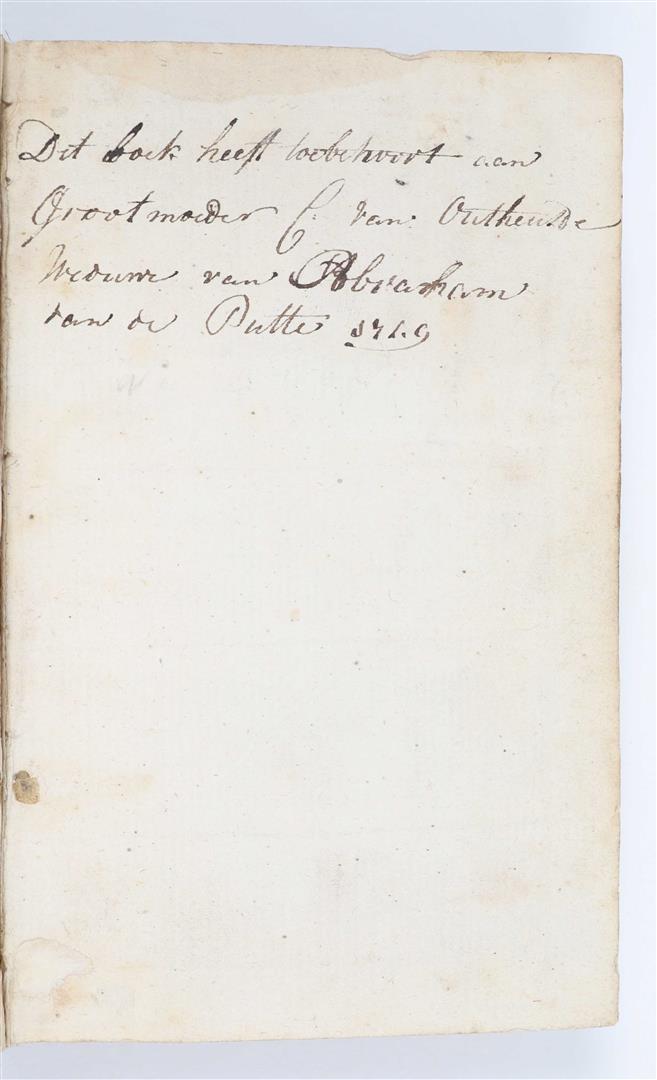 Dit boek heeft toebehoort aan
Grootmoeder C: van Outheusde
Weduwe van Abraham
van de Putte 1719